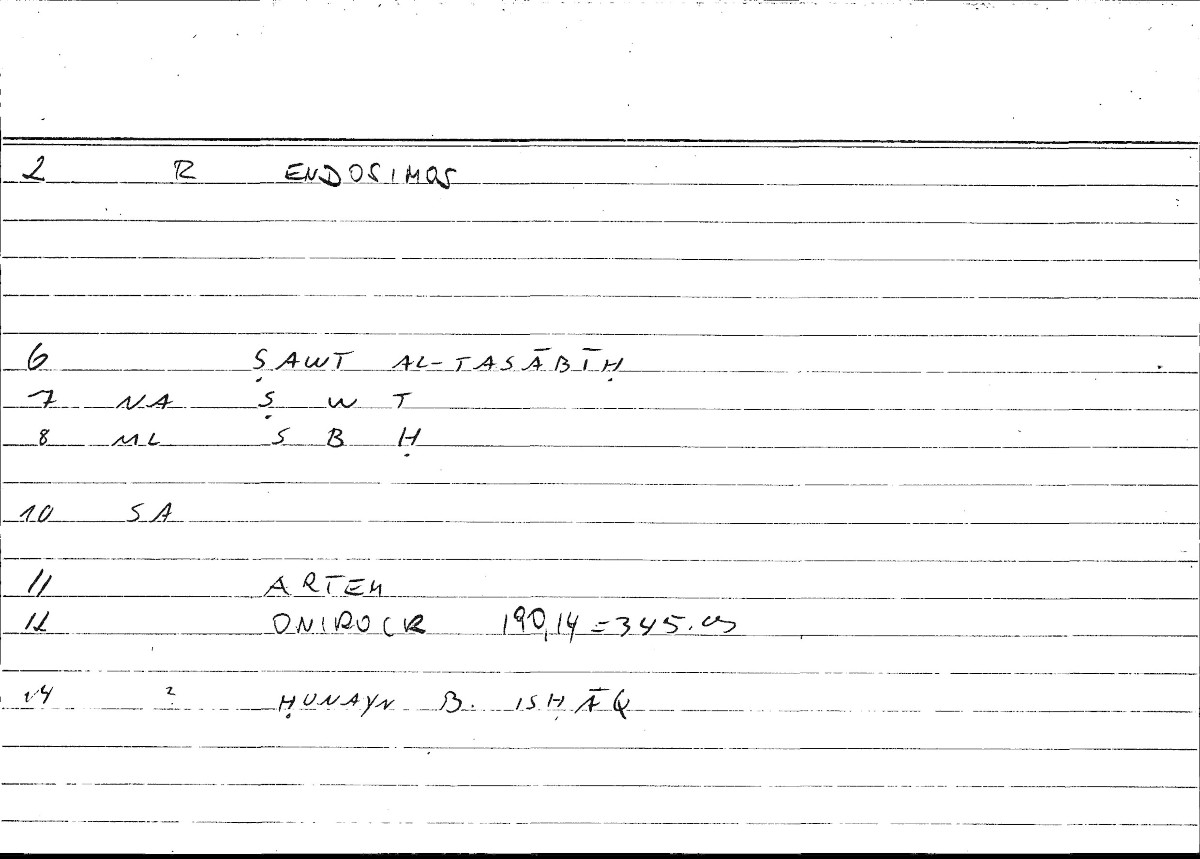 2 R ENDOSIMOS
6 ṢAWT AL-TASĀBĪḤ
7 NA Ṣ W T
8 ML S B Ḥ
10 SA
11 ARTEM
12 ONIROCR 190,14 =
14 2 ḤUNAYN B. ISḤĀQ